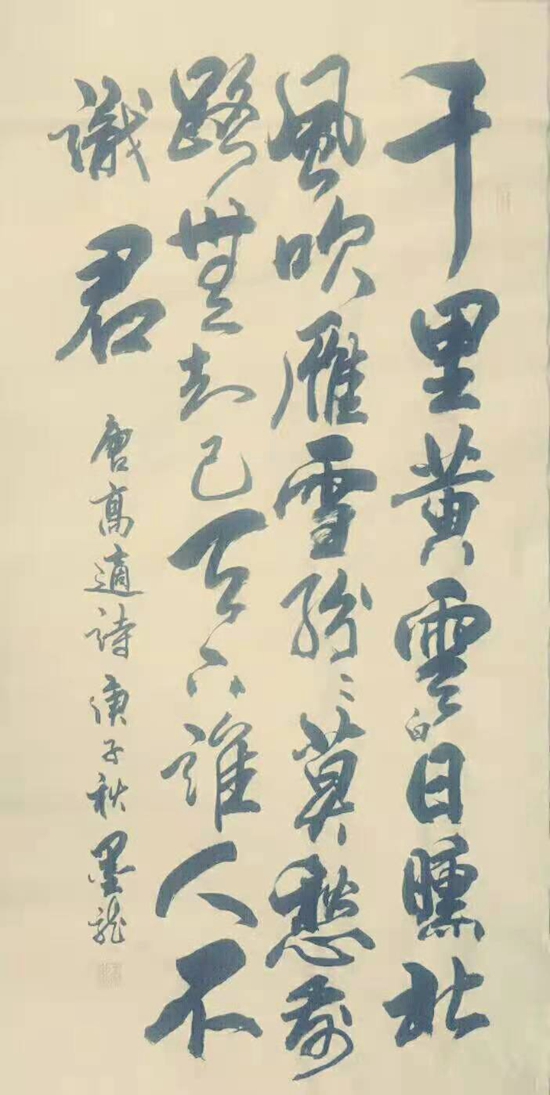 千里黄雲白日曛北
風吹雁雪紛〻莫愁前
路無知己天下誰人不
識君
唐高適詩庚子秋墨龍